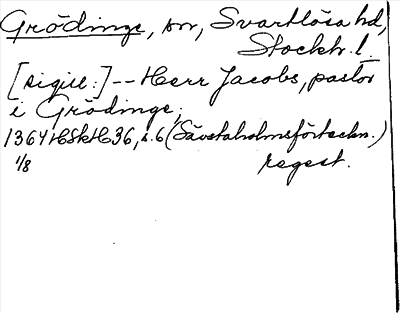 Grödinge, sn, Svartlösa hd,
Stockh. l.
[sigill:] -- Herr Jacobs, pastor
i Grödinge;
1364 HSkH 36, s. 6 (Sävstaholmsförteckn.)
1/8 regest.